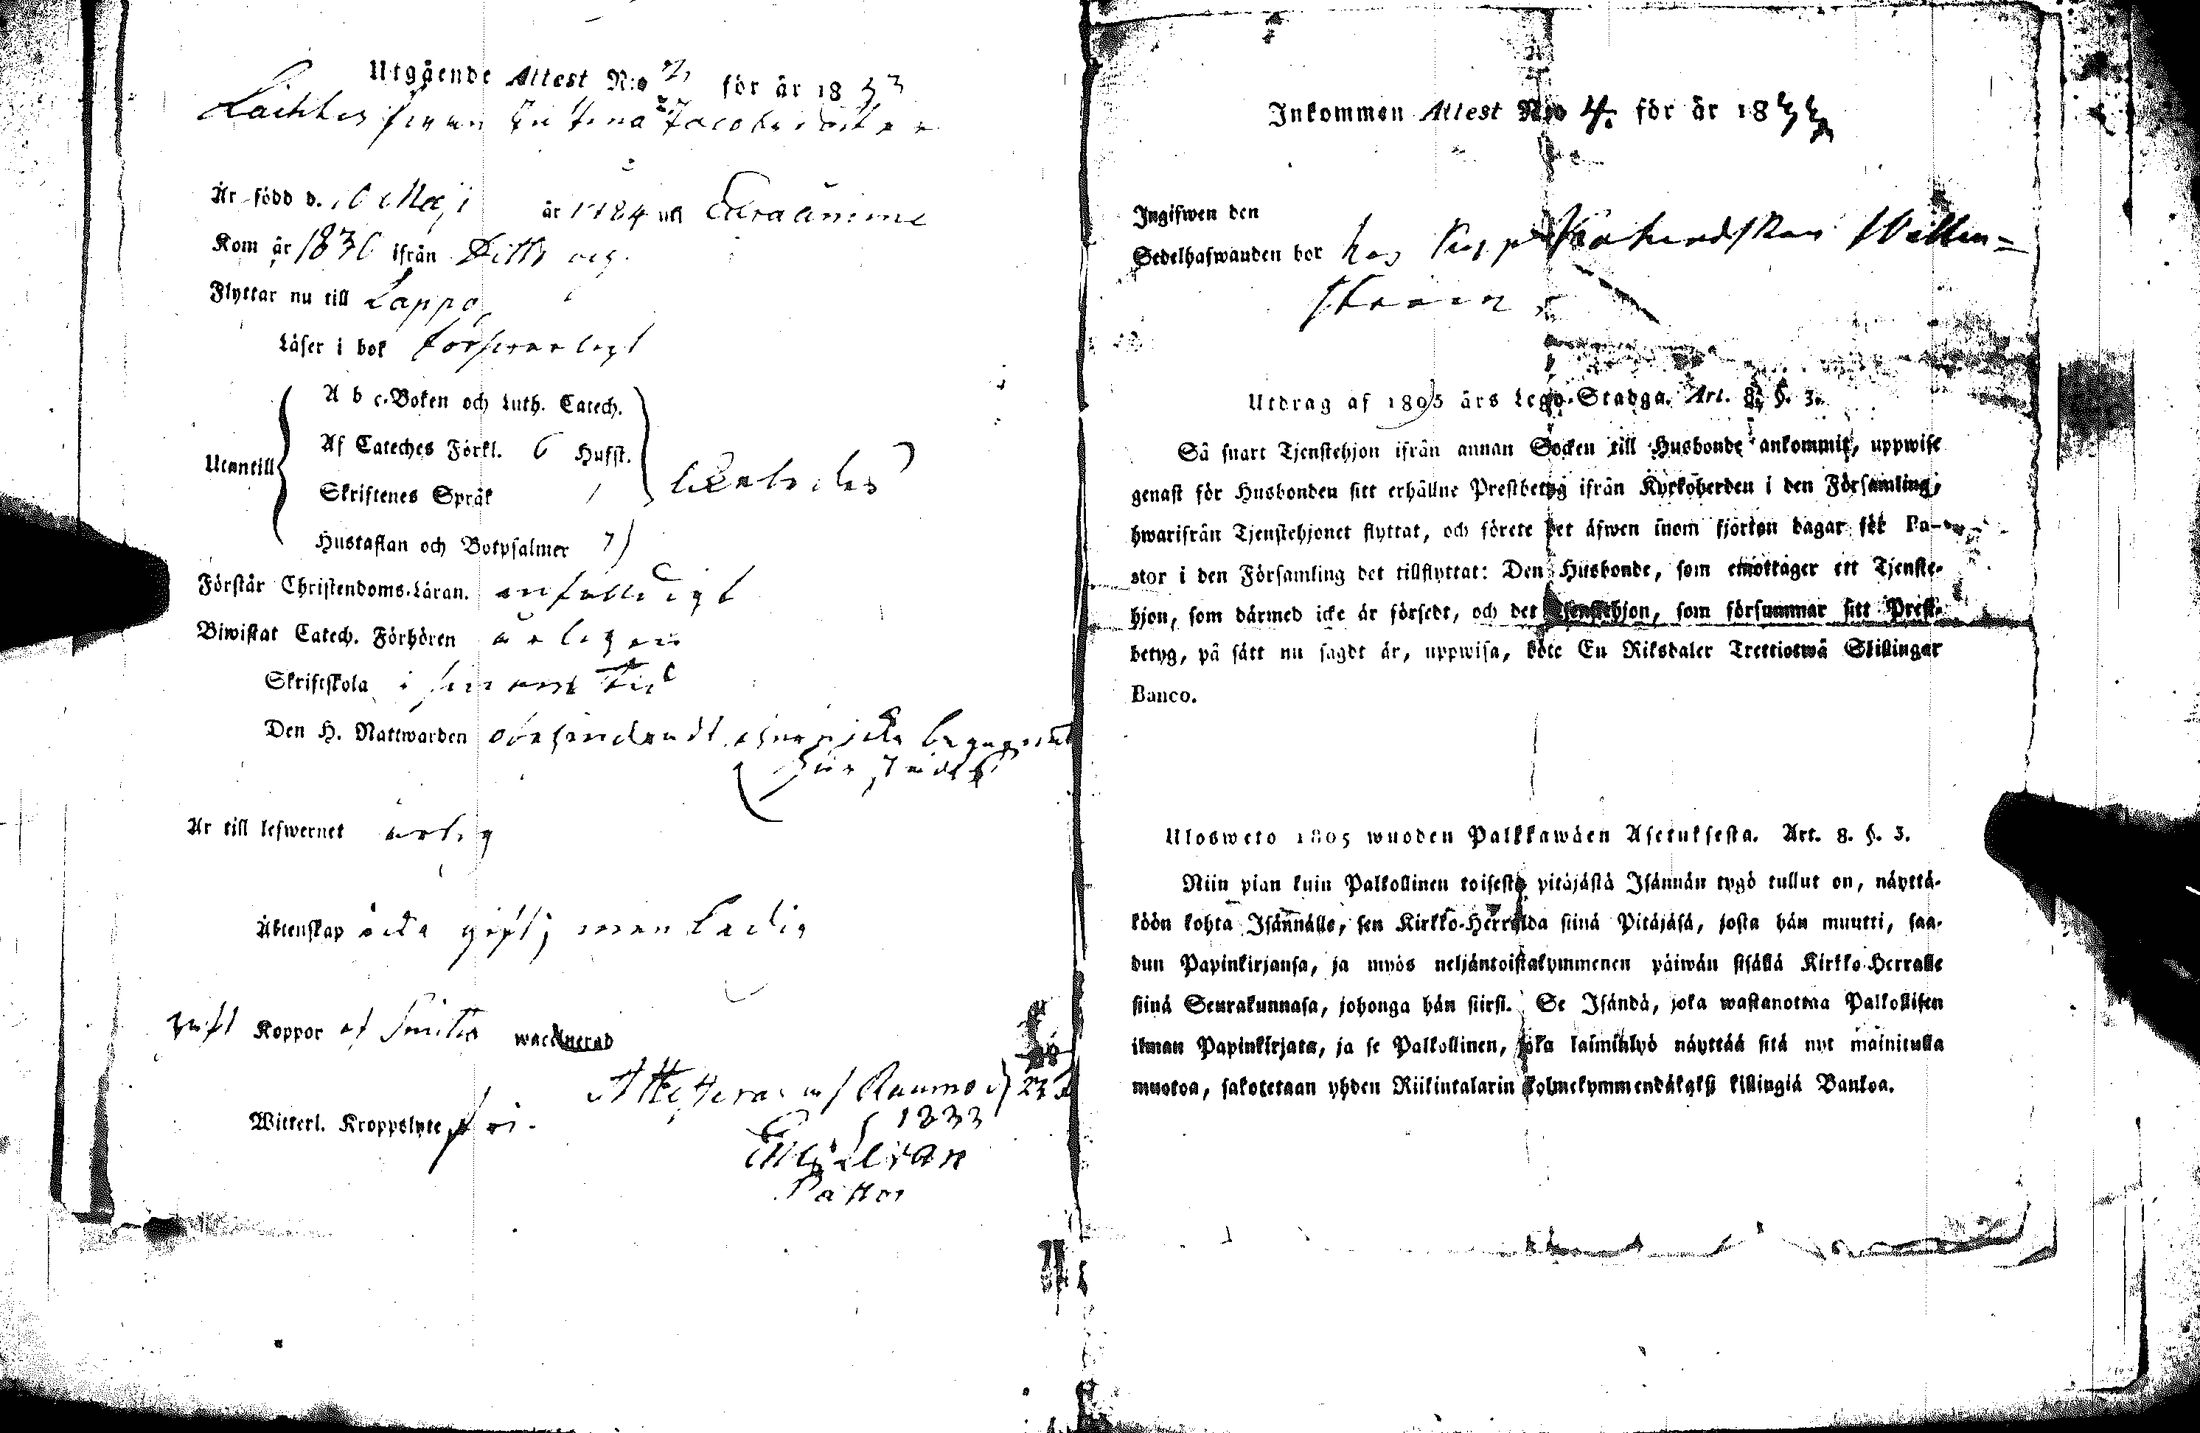 Utgående Attest N:o för år 1833
Är född d. Maji år 1784 uti
Kom år 1830 ifrån
Flyttar nu till Lappo
Läser i bok försvarligt
A b c-Boken och Luth. Catech.
Af Cateches Förkl. 6 Hufst.
Utantill
Skriftenes Språk
Hustaflan och Botpsalmer 7
Förstår Christendoms-Läran. enfalldigt
Biwistat Catech. Förhören årligen
Skriftskola i sin
Den H. Nattwarden obehindradt
Är till lefwernet ärlig
Äktenskap icke gift; men Ledig
Haft Koppor af Smitta waccinerad
Attesterar Raumo d 23
Witterl. Kroppslyte fri. 1833
Pastor
Inkommen Attest N:o 4. för år 18
Ingifwen den
Sedelhafwanden bor hos
ström
Utdrag af 1805 års Lego-Stadga. Art. 8. §. 3.
Så snart Tjenstehjon ifrån annan Socken till Husbonde ankommit, uppwise
genast för Husbonden sitt erhållne Prestbetyg ifrån Kyrkoherden i den Församling,
hwarifrån Tjenstehjonet flyttat, och förete det äfwen inom fjorton dagar för Pa-
stor i den Församling det tillflyttat: Den Husbonde, som emottager ett Tjenste-
hjon, som därmed icke är försedt, och det Tjenstehjon, som försummar sitt Prest-
betyg, på sätt nu sagdt är, uppwisa, böte En Riksdaler Trettiotwå Skillingar
Banco.
Ulosweto 1805 wuoden Palkkawäen Asetuksesta. Art. 8. §. 3.
Niin pian kuin Palkollinen toisesta pitäjästä Isännän tygö tullut on, näyttä-
köön kohta Isännälle, sen Kirkko-Herralda siinä Pitäjäsä, josta hän muutti, saa-
dun Papinkirjansa, ja myös neljäntoistakymmenen päiwän sisällä Kirkko-Herralle
siinä Seurakunnasa, johonga hän siirsi. Se Isändä, joka wastanottaa Palkollisen
ilman Papinkirjata, ja se Palkollinen, joka laiminlyö näyttää sitä nyt mainitulla
muotoa, sakotetaan yhden Riikintalarin kolmekymmendäkaksi killingiä Bankoa.